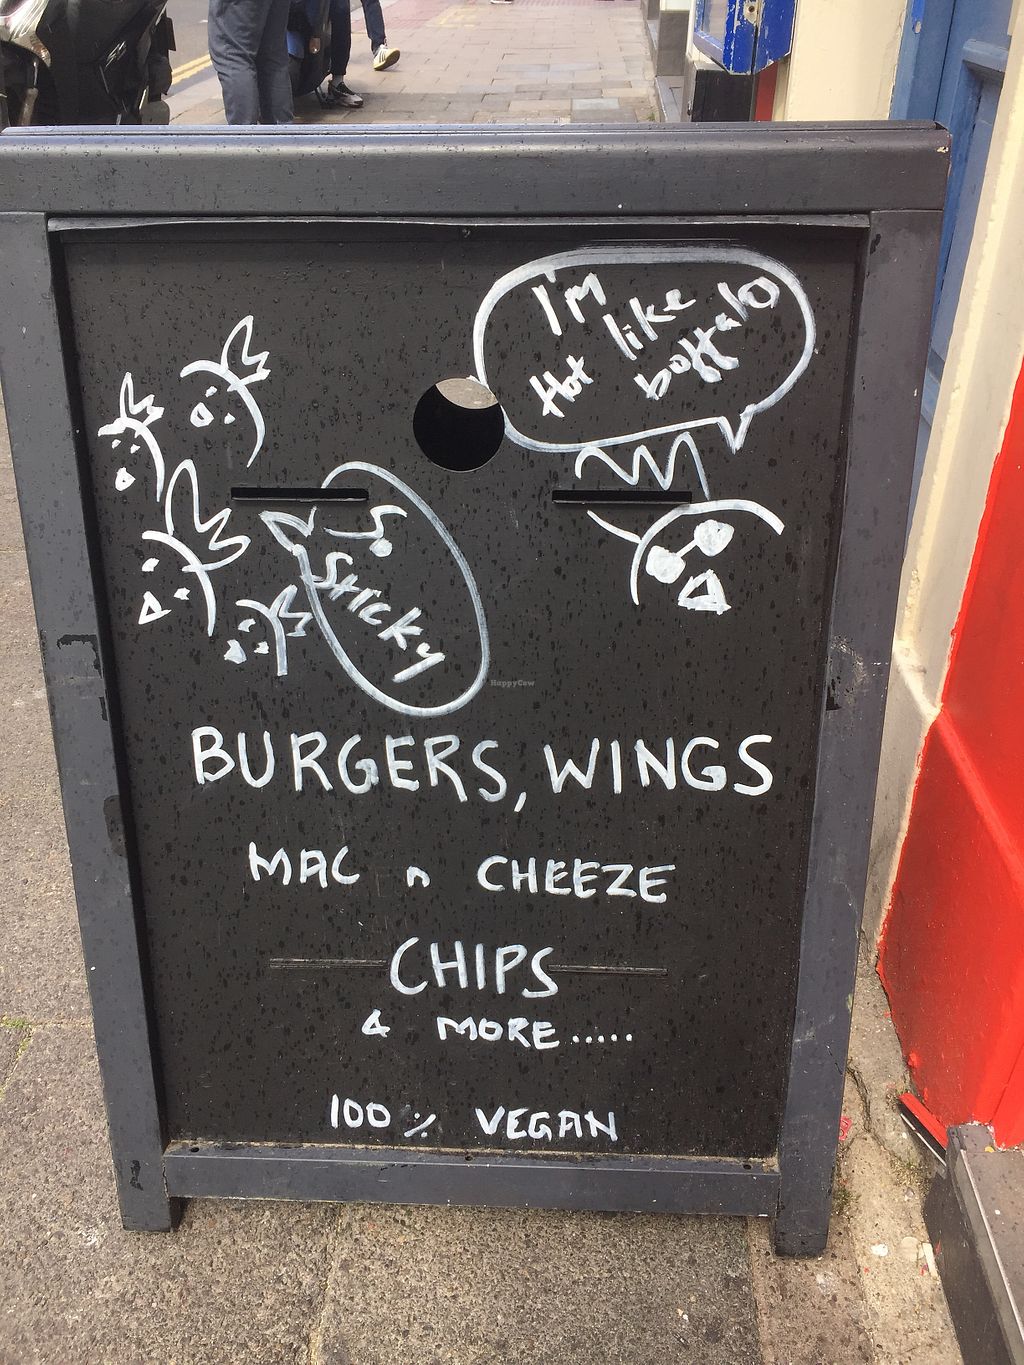 I'm
Hot like
buffalo
So
Sticky
HappyCow
BURGERS, WINGS
MAC n CHEEZE
CHIPS
& MORE.....
100% VEGAN